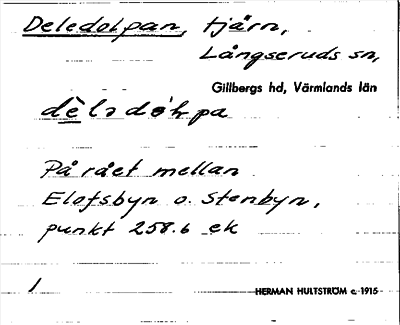 Deledolpan, tjärn,
Långseruds sn,
Gillbergs hd, Värmlands län
På rået mellan
Elofsbyn o. Stenbyn,
punkt 258.6 ek
1
HERMAN HULTSTRÖM c. 1915